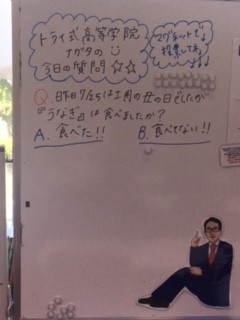 トライ式高等学院
ナガタの
今日の質問☆☆
マグネットで
投票してね
Q. 昨日7/25は土用の丑の日でしたが
『うなぎ』は食べましたか？
A. 食べた!!
B. 食べてない!!